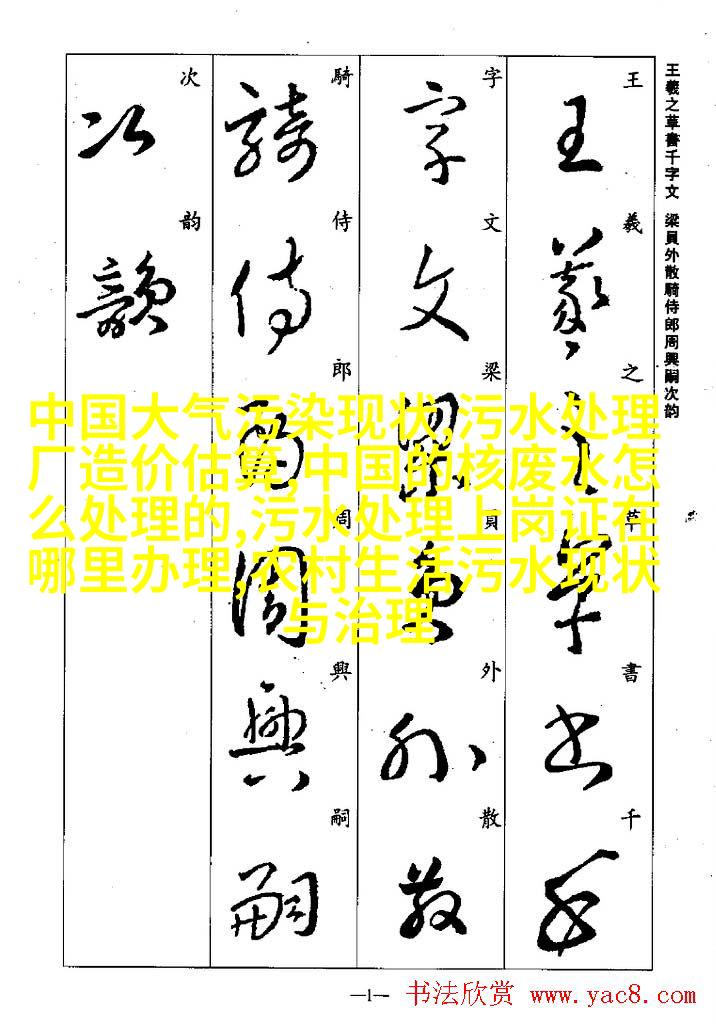 王羲之草書千字文 梁員外散騎侍郎周興嗣次韵
王羲之草書千
字文梁員外散
騎侍郎周興嗣
次韵
中国大气污染现状,污水处理
厂造价估算,中国的核废水怎
么处理的,污水处理上岗证在
哪里办理,农村生活污水现状
与治理
—1—
书法欣赏 www.yac8.com